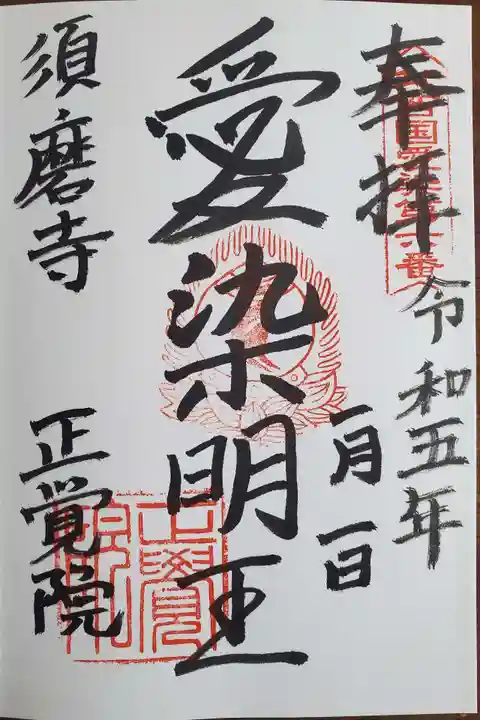 奉拝
令和五年
一月一日
愛染明王
須磨寺 正覚院
正覺院